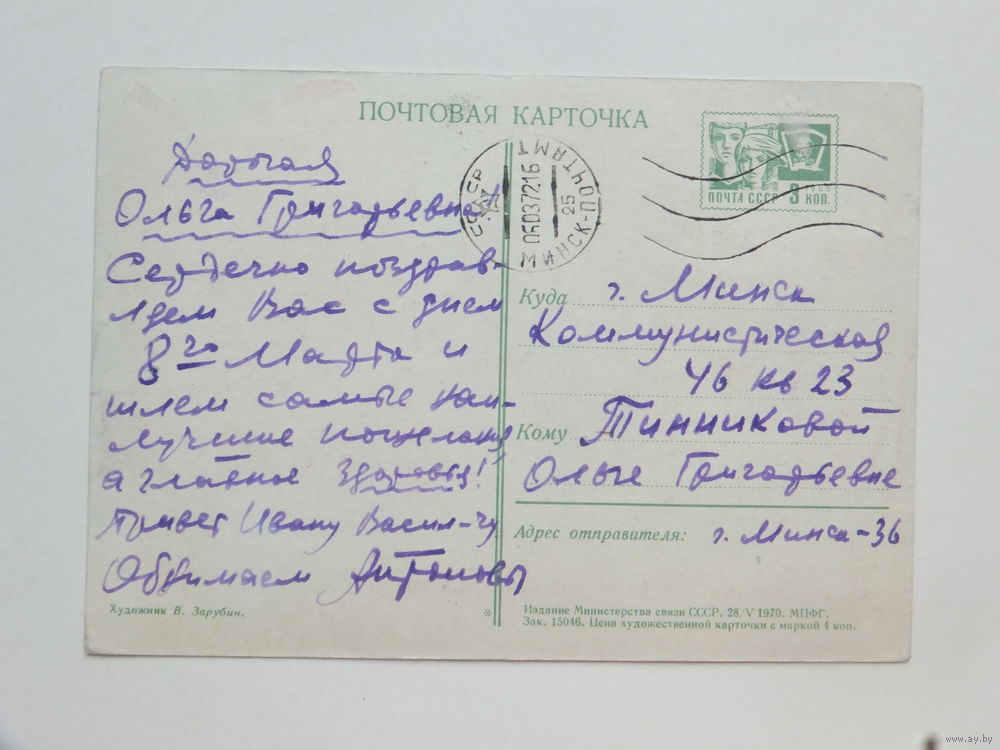 ПОЧТОВАЯ КАРТОЧКА
Дорогая
Ольга Григорьевна!
Сердечно поздрав-
ляем Вас с днем
8го Марта и
шлем самые наи-
лучшие пожелания
а главное здоровья!
Привет Ивану Васил-чу.
Обнимаем Антоновы
Художник В. Зарубин.
СССР
МИНСК-ПОЧТАМТ
06037216
25
ПОЧТА СССР
1966
3 КОП.
Куда г. Минск
Коммунистическая
46 кв 23
Кому Тинниковой
Ольге Григорьевне
Адрес отправителя: г. Минск-36
Издание Министерства связи СССР. 28/V 1970. МПФГ.
Зак. 15046. Цена художественной карточки с маркой 4 коп.
www.ay.by